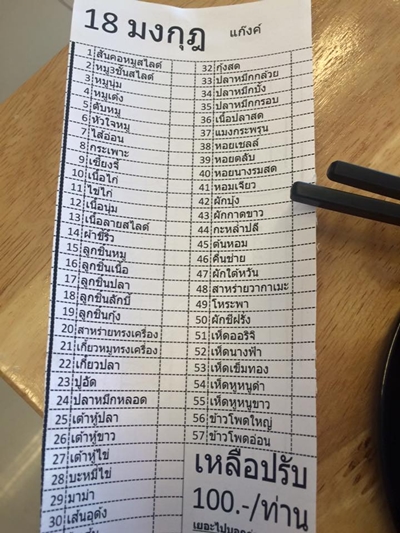 18 มงกุฎ แก๊งค์
1 สันคอหมูสไลด์
2 หมู3ชั้นสไลด์
3 หมูนุ่ม
4 หมูเด้ง
5 ตับหมู
6 หัวใจหมู
7 ไส้อ่อน
8 กระเพาะ
9 เซี่ยงจี้
10 เนื้อไก่
11 ไข่ไก่
12 เนื้อนุ่ม
13 เนื้อลายสไลด์
14 ผ้าขี้ริ้ว
15 ลูกชิ้นหมู
16 ลูกชิ้นเนื้อ
17 ลูกชิ้นปลา
18 ลูกชิ้นลักบี้
19 ลูกชิ้นกุ้ง
20 สาหร่ายทรงเครื่อง
21 เกี๊ยวหมูทรงเครื่อง
22 เกี๊ยวปลา
23 ปูอัด
24 ปลาหมึกหลอด
25 เต้าหู้ปลา
26 เต้าหู้ขาว
27 เต้าหู้ไข่
28 บะหมี่ไข่
29 มาม่า
30 เส้นอุด้ง
32 กุ้งสด
33 ปลาหมึกกล้วย
34 ปลาหมึกบั้ง
35 ปลาหมึกกรอบ
36 เนื้อปลาสด
37 แมงกระพรุน
38 หอยเชลล์
39 หอยตลับ
40 หอยนางรมสด
41 หอมเจียว
42 ผักบุ้ง
43 ผักกาดขาว
44 กะหล่ำปลี
45 ต้นหอม
46 คื่นช่าย
47 ผักไต้หวัน
48 สาหร่ายวากาเมะ
49 โหระพา
50 ผักชีฝรั่ง
51 เห็ดออริจิ
52 เห็ดนางฟ้า
53 เห็ดเข็มทอง
54 เห็ดหูหนูดำ
55 เห็ดหูหนูขาว
56 ข้าวโพดใหญ่
57 ข้าวโพดอ่อน
เหลือปรับ
100.-/ท่าน